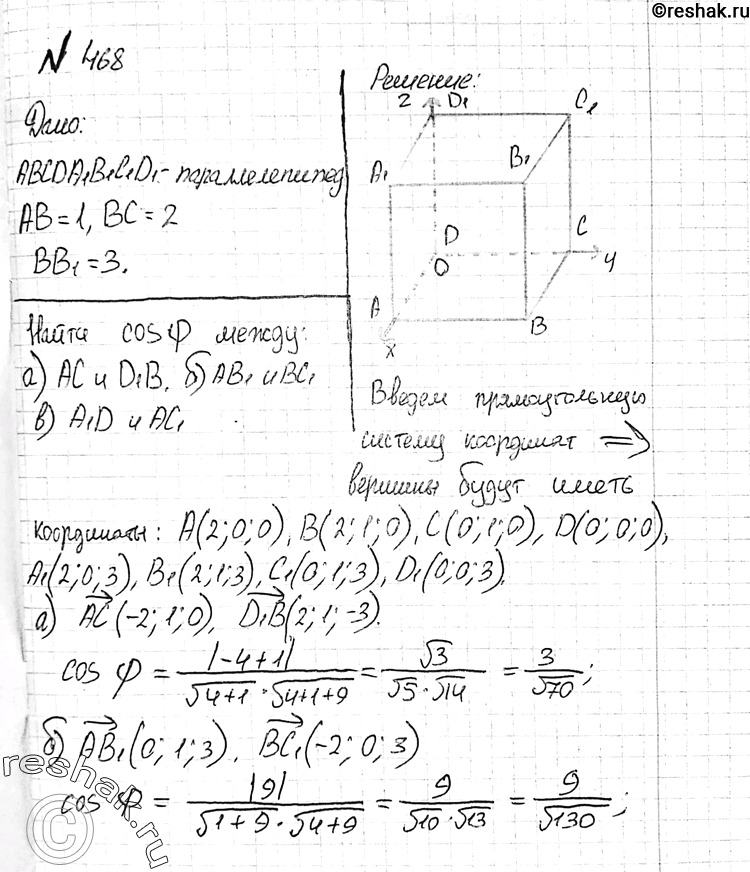 ©reshak.ru
№ 468
Дано:
ABCDA₁B₁C₁D₁-параллелепипед
AB=1, BC=2
BB₁=3.
Найти cosφ между:
а) AC и D₁B, б) AB₁ и BC₁
в) A₁D и AC₁
Решение:
z D₁ C₁
A₁ B₁
D C
O y
A B
x
Введем прямоугольную
систему координат ⇒
вершины будут иметь
координаты: A(2;0;0), B(2;1;0), C(0;1;0), D(0;0;0),
A₁(2;0;3), B₁(2;1;3), C₁(0;1;3), D₁(0;0;3).
а) AC→(-2;1;0), D₁B→(2;1;-3).
cos φ = |-4+1|/(√4+1·√4+1+9) = √3/(√5·√14) = 3/√70;
б) AB₁→(0;1;3), BC₁→(-2;0;3)
cos φ = |9|/(√1+9·√4+9) = 9/(√10·√13) = 9/√130;
©reshak.ru